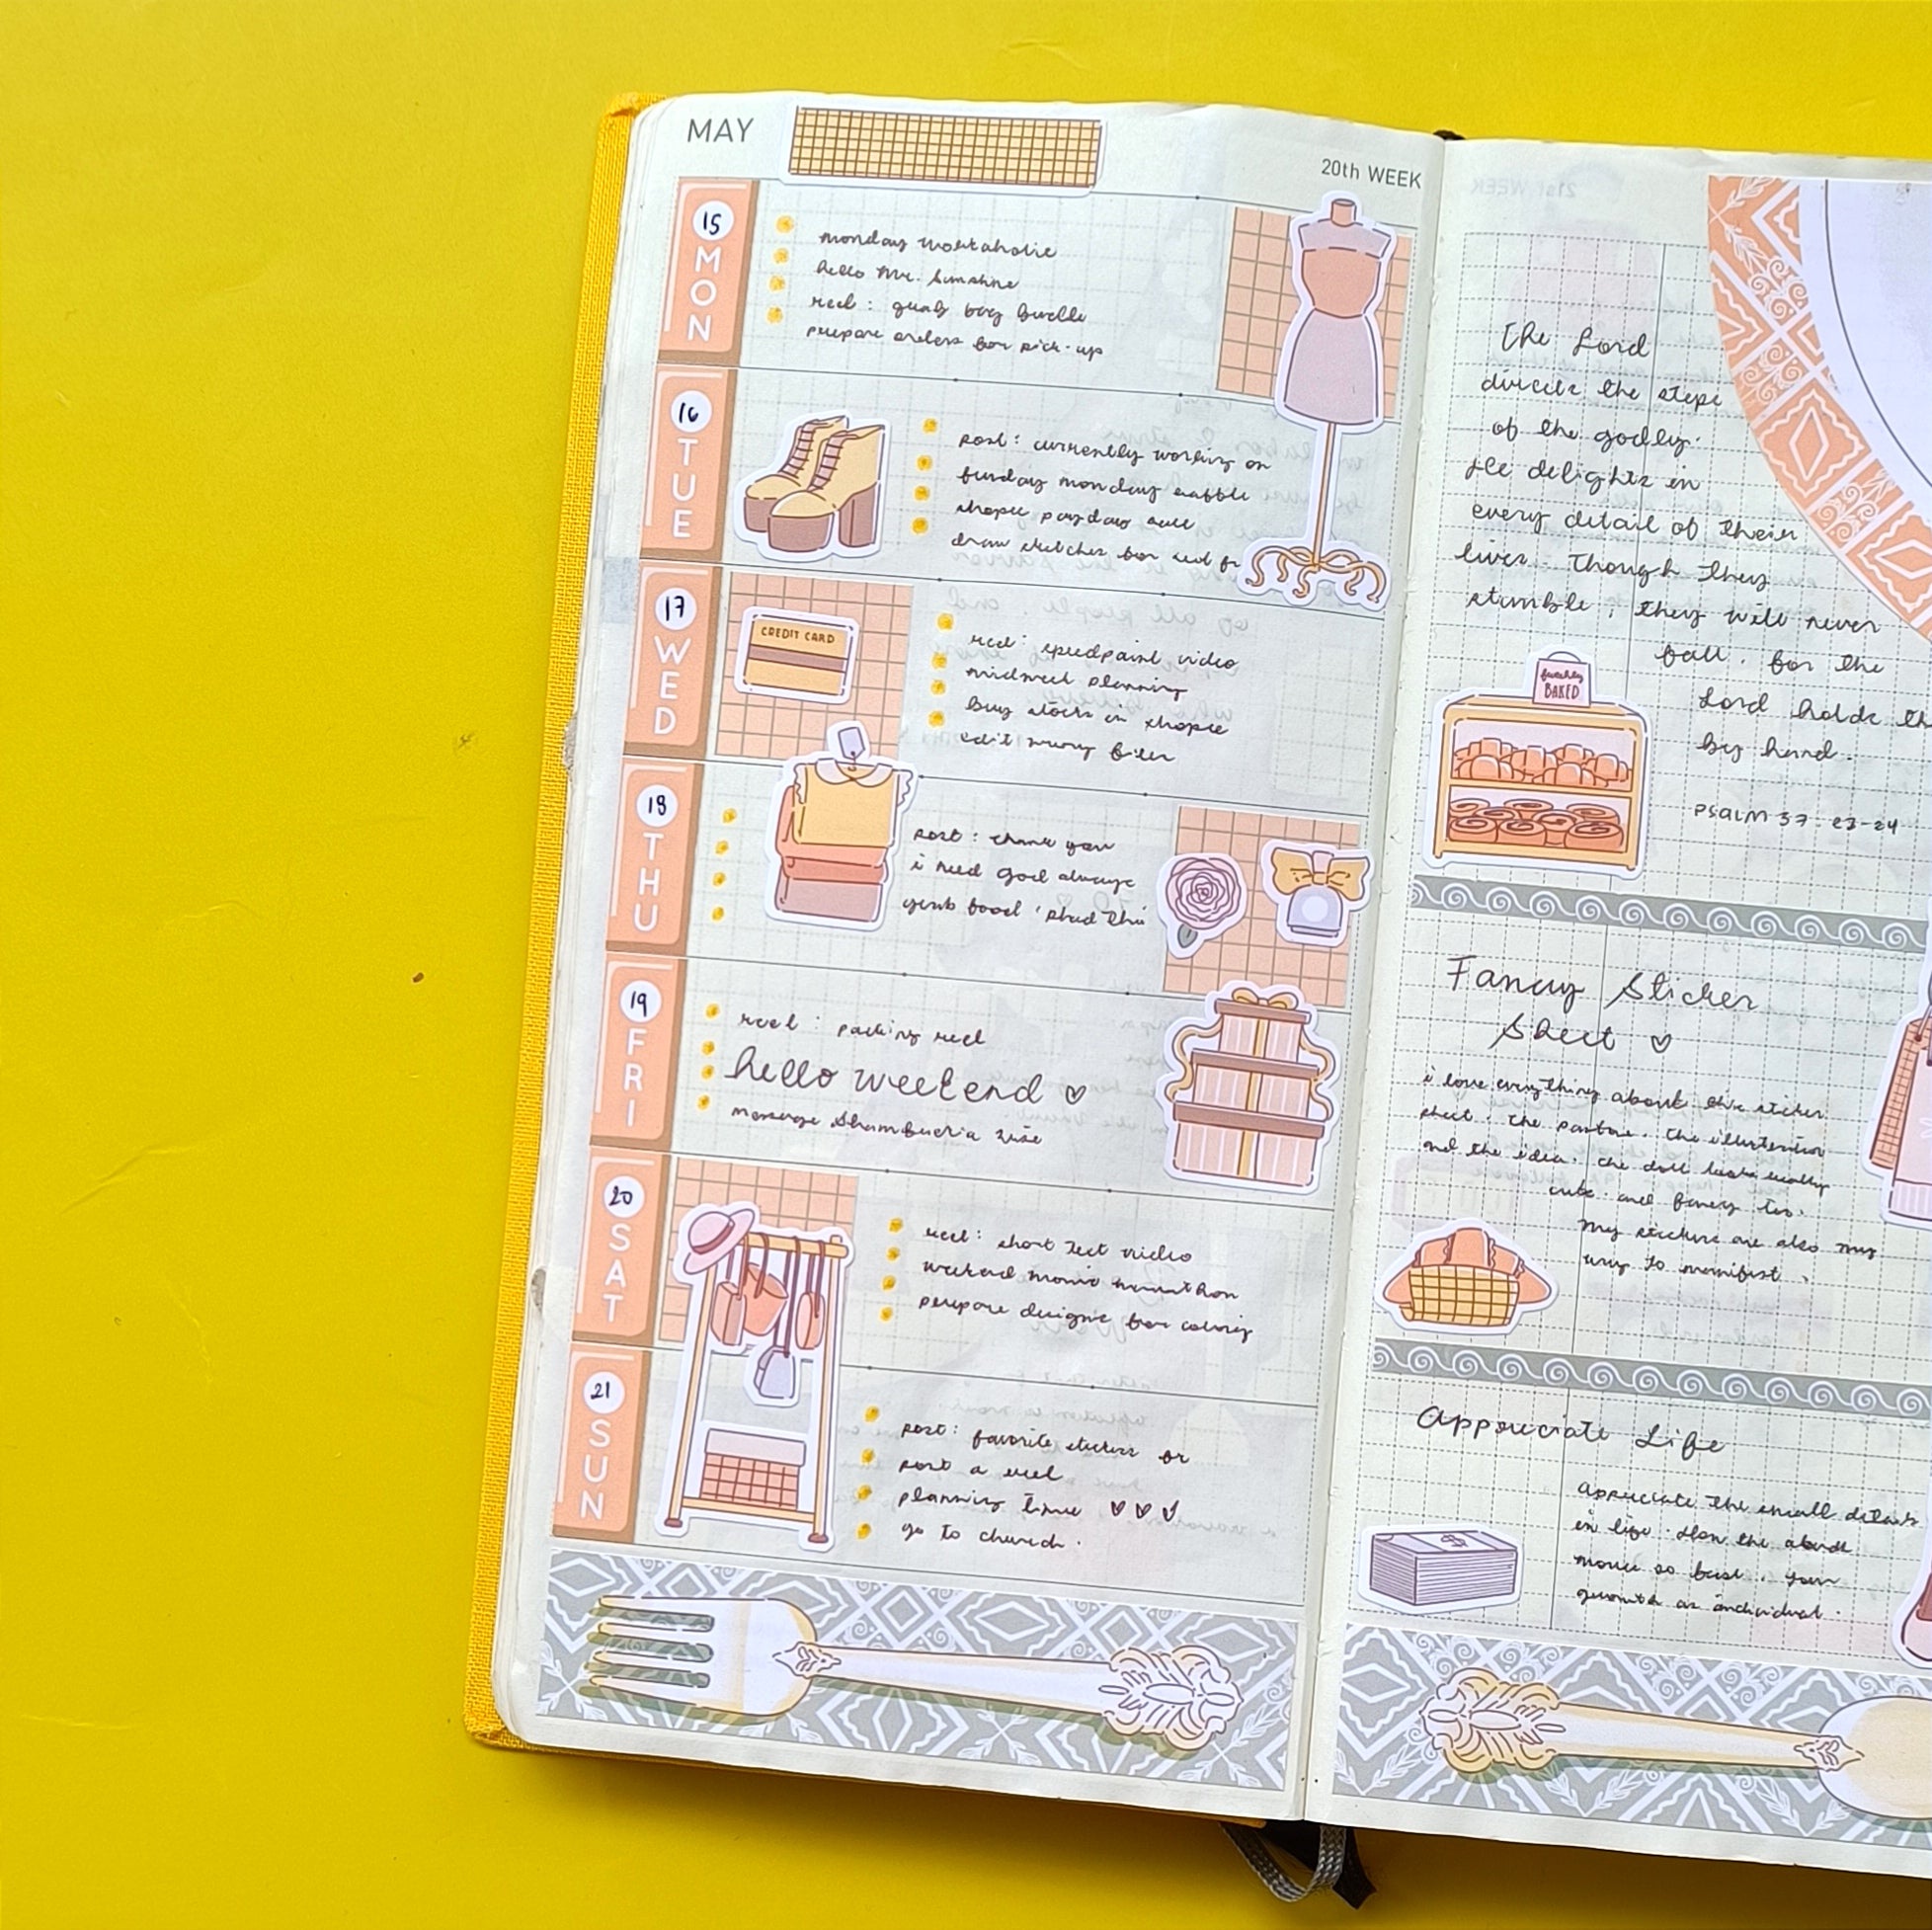 MAY
20th WEEK
15
MON
monday workaholic
hello Mr. Sunshine
reel: grab bag bundle
prepare orders for pick-up
16
TUE
post: currently working on
funday monday raffle
shopee payday sale
draw sketches for
17
WED
CREDIT CARD
reel: speedpaint video
midweek planning
buy stocks in shopee
edit
18
THU
post: thank you
i need god always
grab food
19
FRI
reel: packing reel
hello weekend ♡
message
20
SAT
reel: short text video
weekend movie marathon
prepare designs for coloring
21
SUN
post: favorite stickers or
post a reel
planning time ♡ ♡ ♡
go to church.
The Lord
directs the steps
of the godly.
He delights in
every detail of their
lives. Though they
stumble, they will never
fall. for the
Lord holds
by hand.
PSALM 37: 23-24
freshly
BAKED
Fancy Sticker
Sheet ♡
i love everything about this sticker
sheet. the the illustration
and the idea. the doll looks really
cute and fancy too.
my stickers are also my
way to manifest.
Appreciate Life
appreciate the small details
in life.
so fast. your
growth as individual.